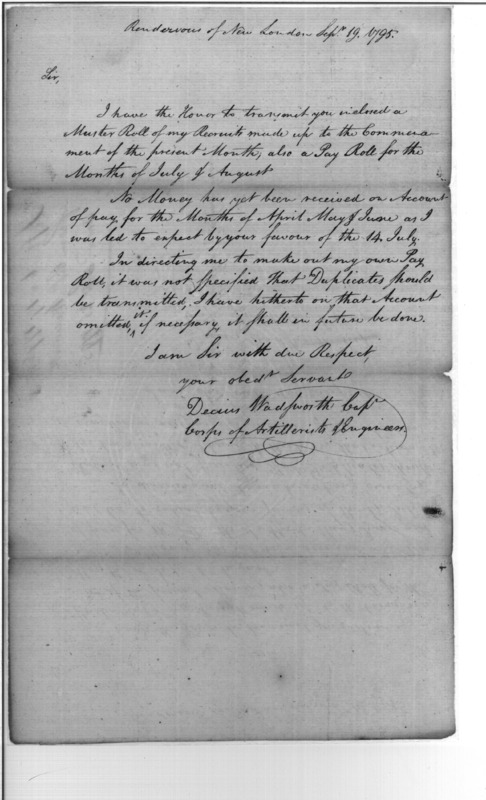 Rendervous of New London Sepr. 19. 1795.
Sir,
I have the Honor to transmit you inclosed a
Muster Roll of my Recruits made up to the Commence-
ment of the present Month, also a Pay Roll for the
Months of July & August
No Money has yet been received on Account
of pay for the Months of April May & June as I
was led to expect by your favour of the 14. July.
In directing me to make out my own Pay
Roll, it was not specified that Duplicates should
be transmitted, I have hitherto on that Account
omitted it, if necessary, it shall in future be done.
I am Sir with due Respect,
your obedt. Servant
Decius Wadsworth Capt.
Corps of Artillerists & Engineers